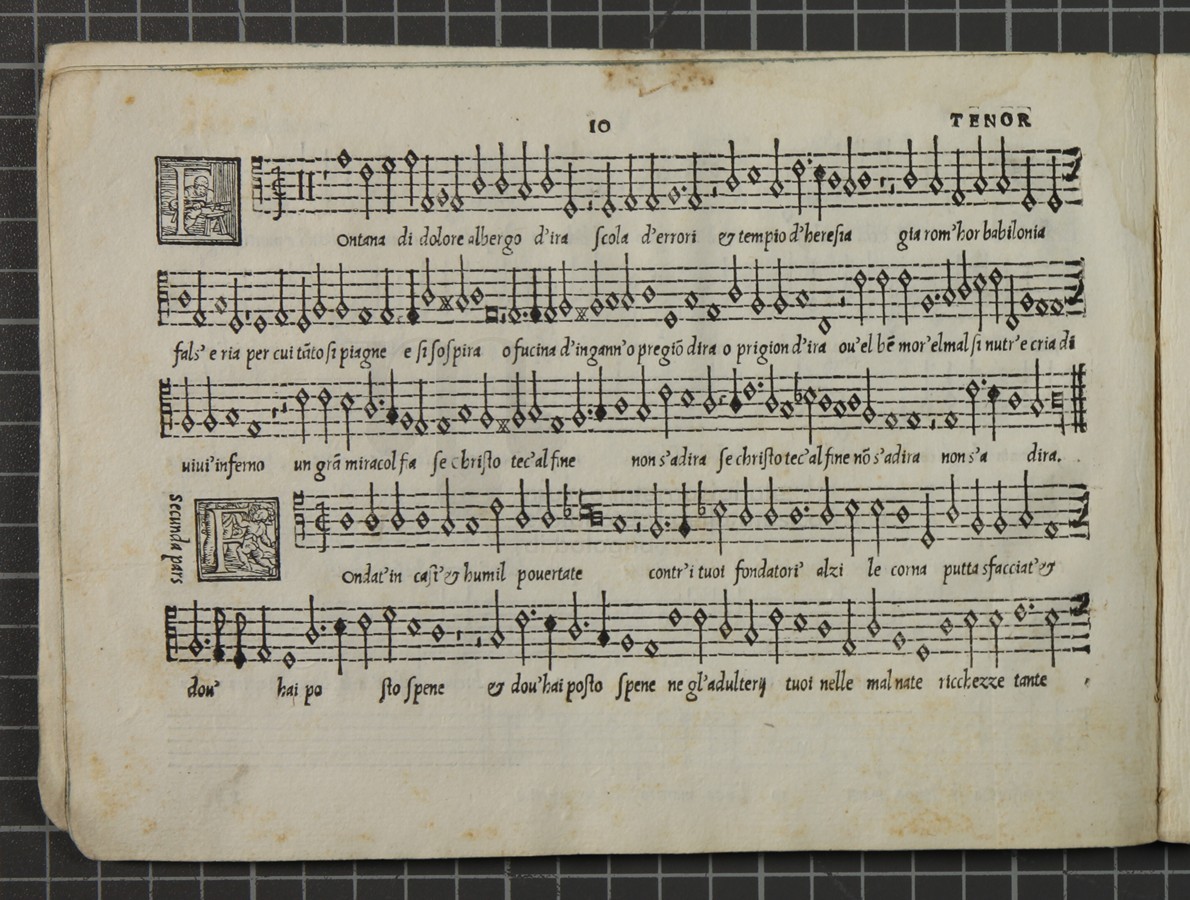 10
TENOR
Fontana di dolore albergo d'ira ſcola d'errori & tempio d'hereſia gia rom'hor babilonia
fals' e ria per cui tāto ſi piagne e ſi ſoſpira o fucina d'ingann'o pregiō dira o prigion d'ira ou'el bē mor'elmal ſi nutr'e cria di
uiui'inferno un grā miracol fa ſe chriſto tec'al fine non s'adira ſe chriſto tec'al fine nō s'adira non s'a dira.
Secunda pars
Fondat'in caſt'& humil pouertate contr'i tuoi fondatori' alzi le corna putta sfacciat'&
dou' hai po ſto ſpene & dou'hai poſto ſpene ne gl'adulterij tuoi nelle mal nate ricchezze tante